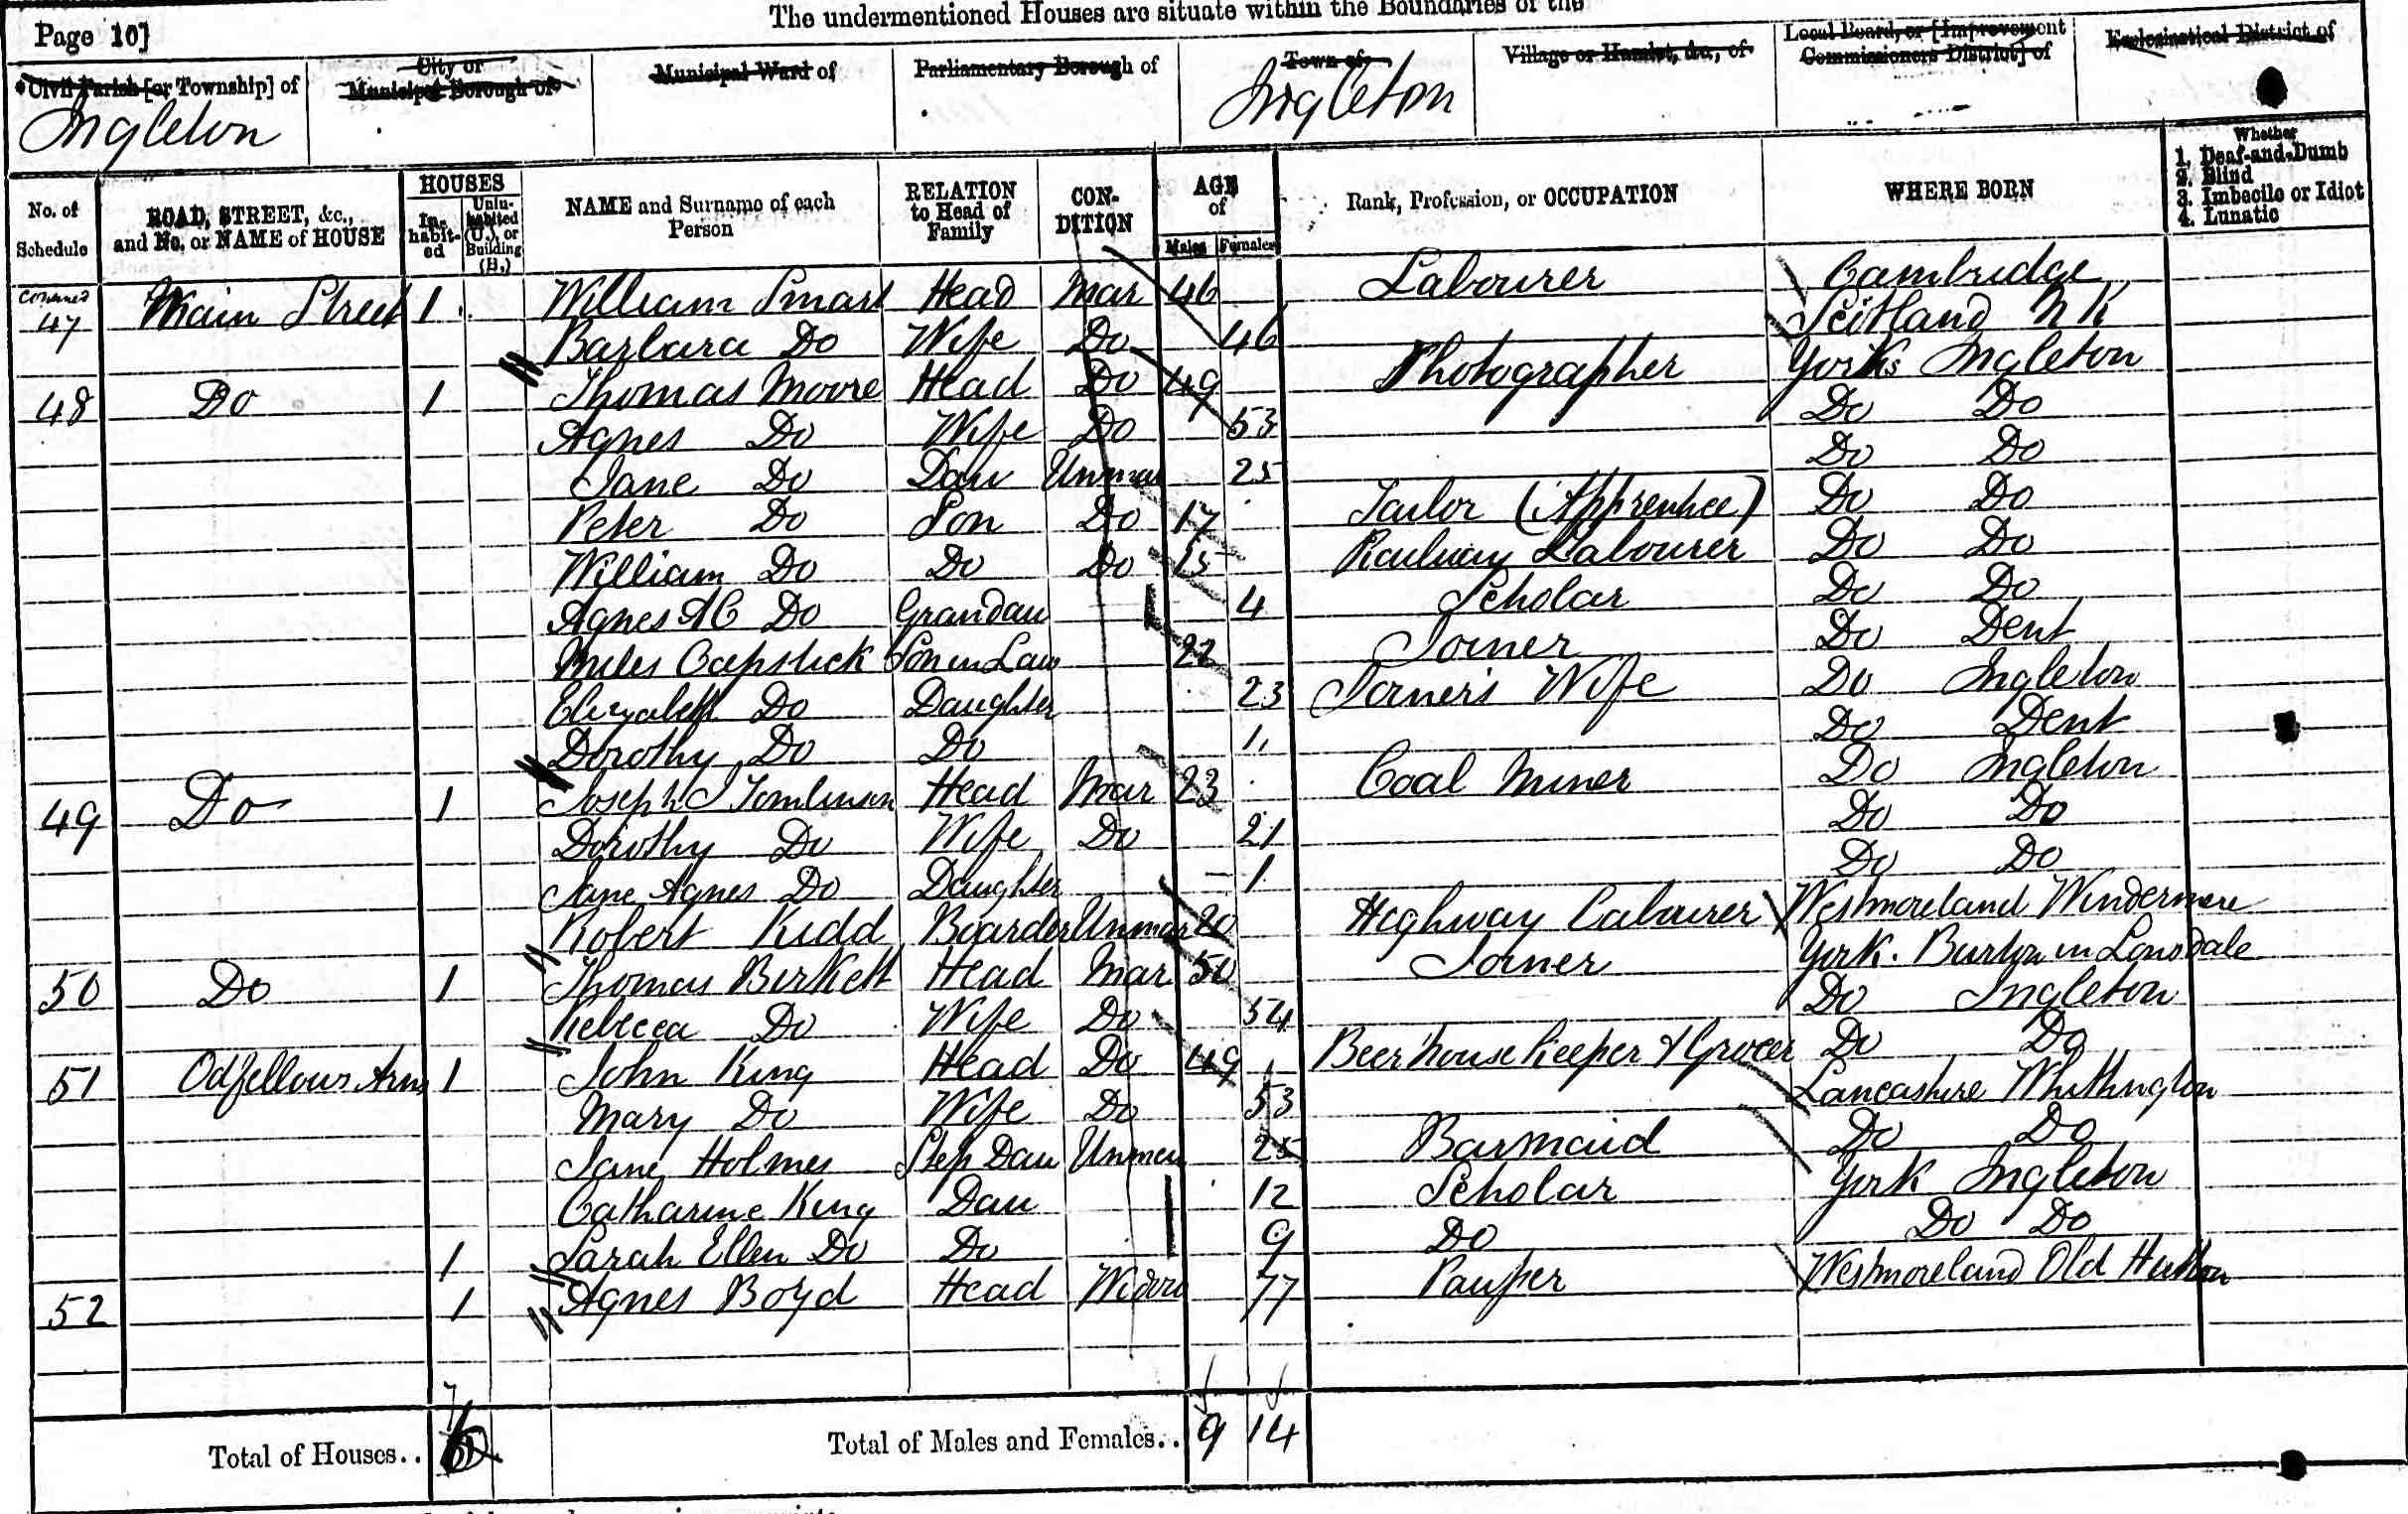 The undermentioned Houses are situate within the Boundaries of the
Page 10]
Civil Parish [or Township] of
Ingleton
City or Municipal Borough of
Municipal Ward of
Parliamentary Borough of
Town of
Ingleton
Village or Hamlet, &c., of
Local Board, or [Improvement Commissioners District] of
Ecclesiastical District of
No. of Schedule
ROAD, STREET, &c., and No. or NAME of HOUSE
HOUSES
Inhabited
Uninhabited (U.), or Building (B.)
NAME and Surname of each Person
RELATION to Head of Family
CONDITION
AGE of
Males Females
Rank, Profession, or OCCUPATION
WHERE BORN
Whether
1. Deaf-and-Dumb
2. Blind
3. Imbecile or Idiot
4. Lunatic
47 Main Street 1 William Smart Head Mar 46 Labourer Cambridge
Barbara Do Wife Do 46 Scotland N K
48 Do 1 Thomas Moore Head Do 49 Photographer Yorks Ingleton
Agnes Do Wife Do 53 Do Do
Jane Do Dau Unmar 25 Do Do
Peter Do Son Do 17 Tailor (Apprentice) Do Do
William Do Do Do 15 Railway Labourer Do Do
Agnes A C Do Grandau 4 Scholar Do Do
Miles Capstick Son in Law 22 Joiner Do Dent
Elizabeth Do Daughter 23 Joiner's Wife Do Ingleton
Dorothy Do Do 1 Do Dent
49 Do 1 Joseph J Tomlinson Head Mar 23 Coal Miner Do Ingleton
Dorothy Do Wife Do 21 Do Do
Jane Agnes Do Daughter 1 Do Do
Robert Kidd Boarder Unmar 20 Highway Labourer Westmoreland Windermere
50 Do 1 Thomas Birkett Head Mar 50 Joiner York. Burton in Lonsdale
Rebecca Do Wife Do 54 Do Ingleton
51 Odfellows Arms 1 John King Head Do 49 Beerhouse Keeper & Grocer Do Do
Mary Do Wife Do 53 Lancashire Whithington
Jane Holmes Step Dau Unmar 25 Barmaid Do Do
Catharine King Dau 12 Scholar York Ingleton
1 Sarah Ellen Do Do 9 Do Do Do
52 1 Agnes Boyd Head Widow 77 Pauper Westmoreland Old Hutton
Total of Houses.. 7
Total of Males and Females.. 9 14